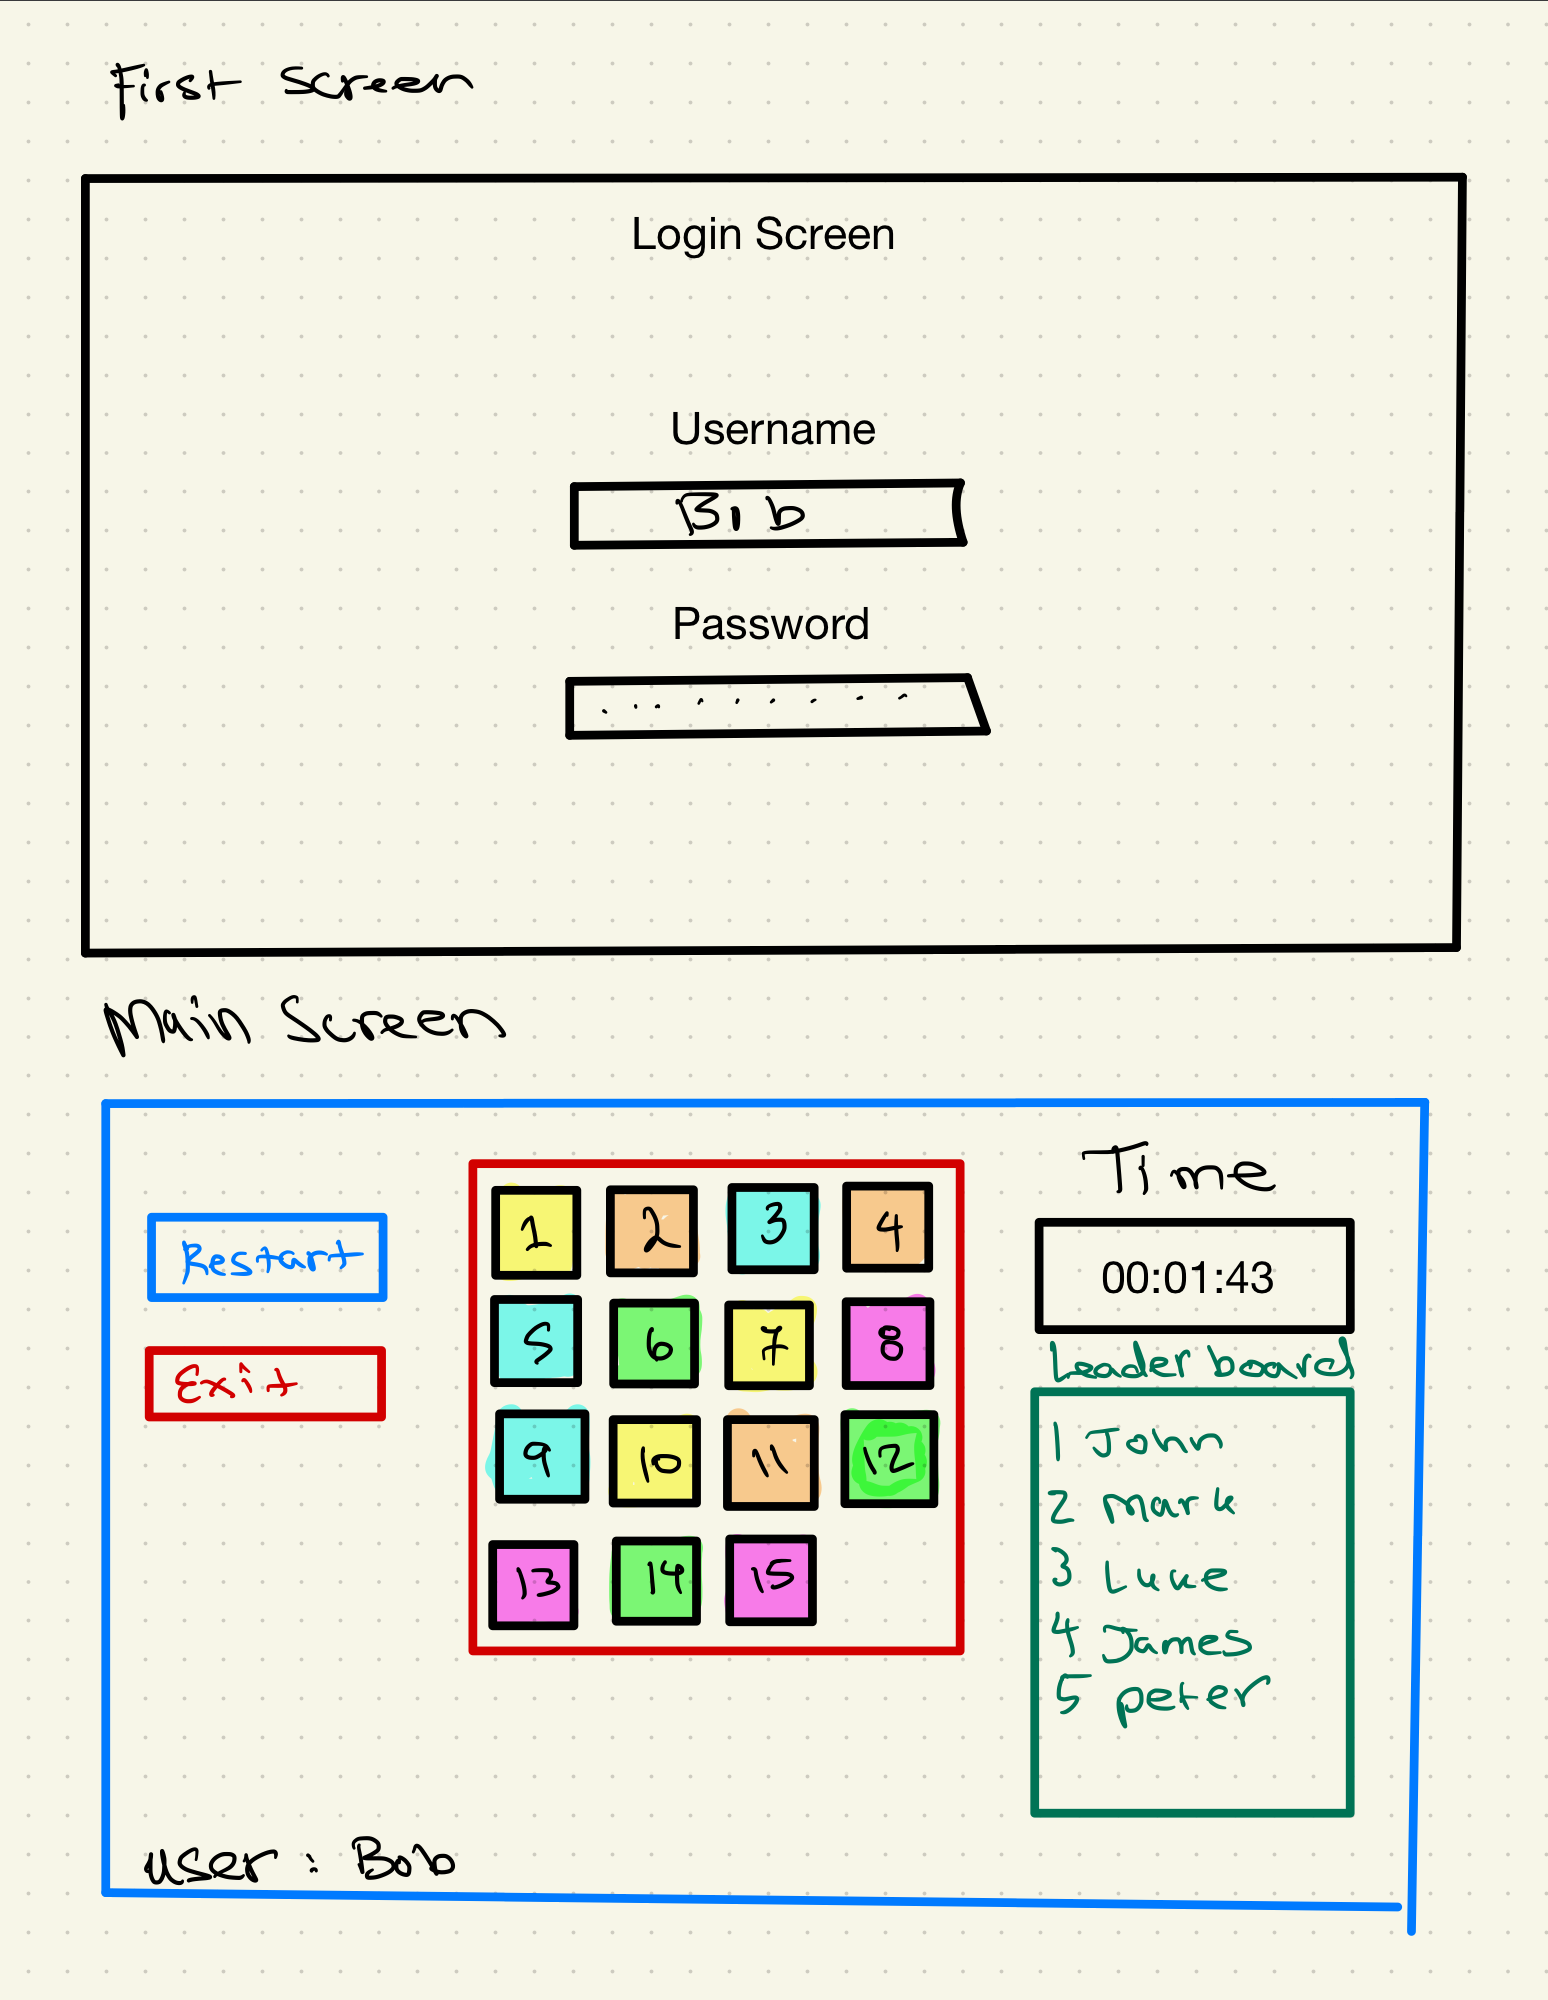 First Screen
Login Screen
Username
Bib
Password
.........
Main Screen
Time
Restart
Exit
1 2 3 4
5 6 7 8
9 10 11 12
13 14 15
00:01:43
Leader board
1 John
2 Mark
3 Luke
4 James
5 peter
user : Bob